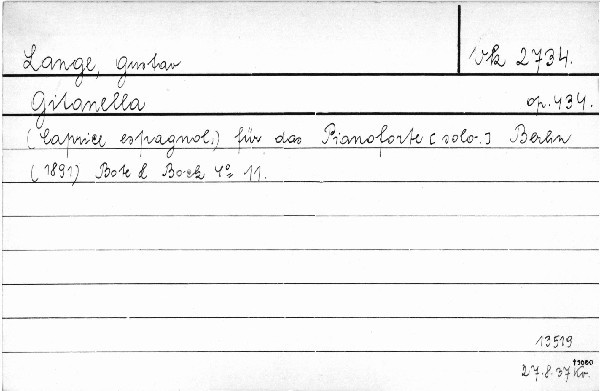 Lange, Gustav
Vk 2734.
Gitanella
op. 434.
(Caprice espagnol.) für das Pianoforte [solo.] Berlin
(1891) Bote & Bock 4° 11.
13519
27.8.37 Kr.